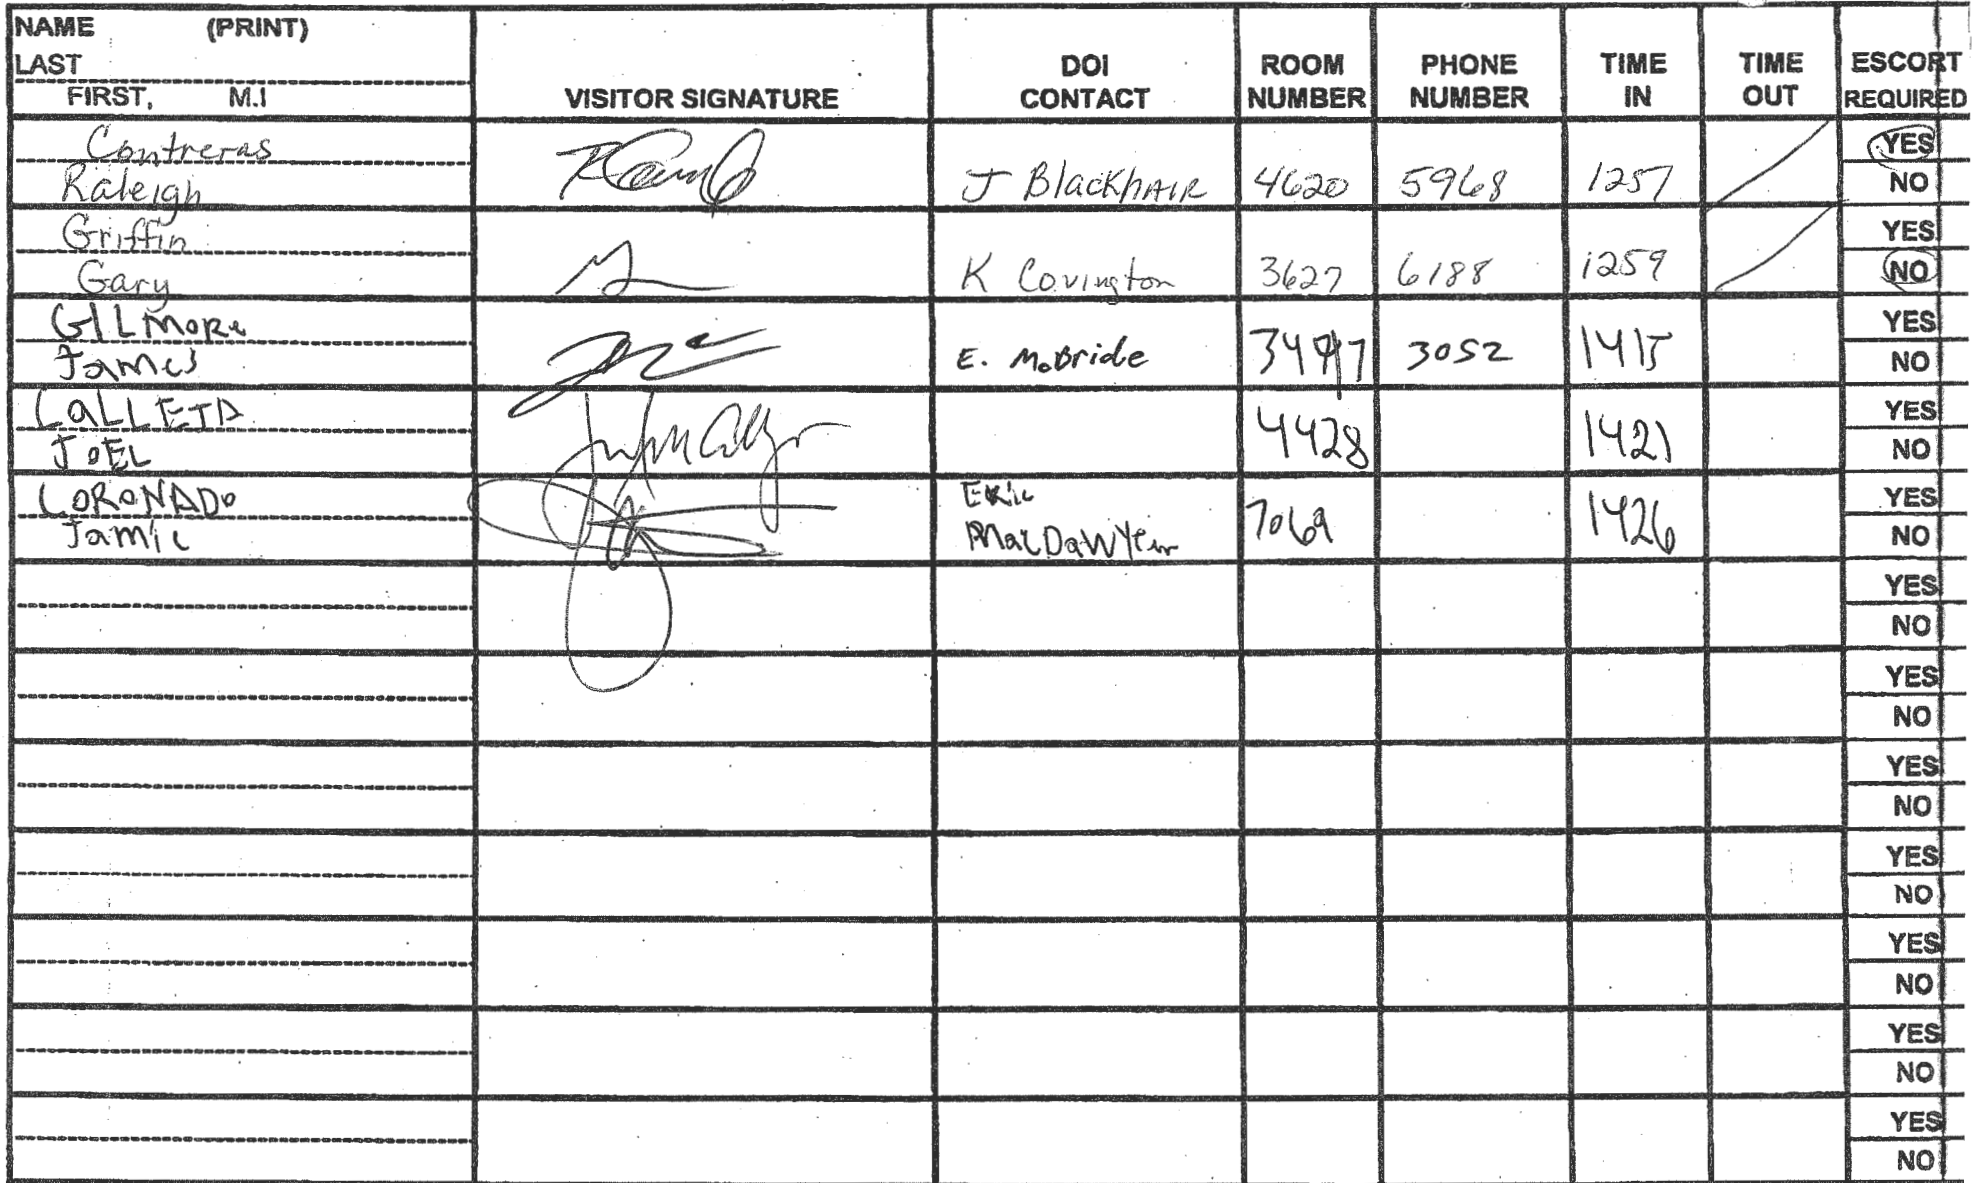 NAME (PRINT)
LAST
FIRST, M.I
VISITOR SIGNATURE
DOI CONTACT
ROOM NUMBER
PHONE NUMBER
TIME IN
TIME OUT
ESCORT REQUIRED
Contreras
YES
Raleigh J BlackhAIR 4620 5968 1257 NO
Griffin
YES
Gary K Covington 3627 6188 1259 NO
GILmore
YES
James E. McBride 3052 1415 NO
YES
JOEL 4428 1421 NO
CORONADO Eric
YES
Jamie 7069 1426 NO
YES
NO
YES
NO
YES
NO
YES
NO
YES
NO
YES
NO
YES
NO